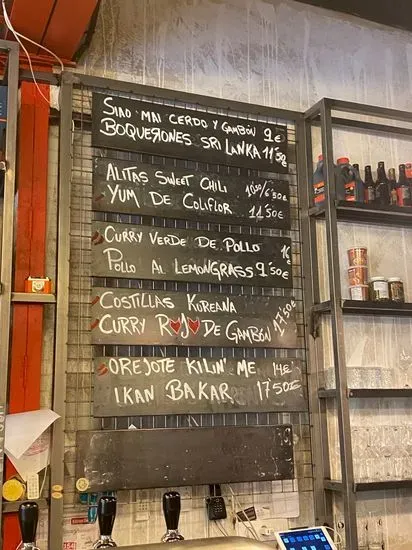 SIAO MAI CERDO Y GAMBÓN 9€
BOQUERONES SRI LANKA 11'50€
ALITAS SWEET CHILI 10'50/6'50€
YUM DE COLIFLOR 11'50€
CURRY VERDE DE POLLO 16€
POLLO AL LEMONGRASS 9'50€
COSTILLAS KOREANA
CURRY ROJO DE GAMBÓN 17'50€
OREJOTE KILIN' ME 14€
IKAN BAKAR 17'50€